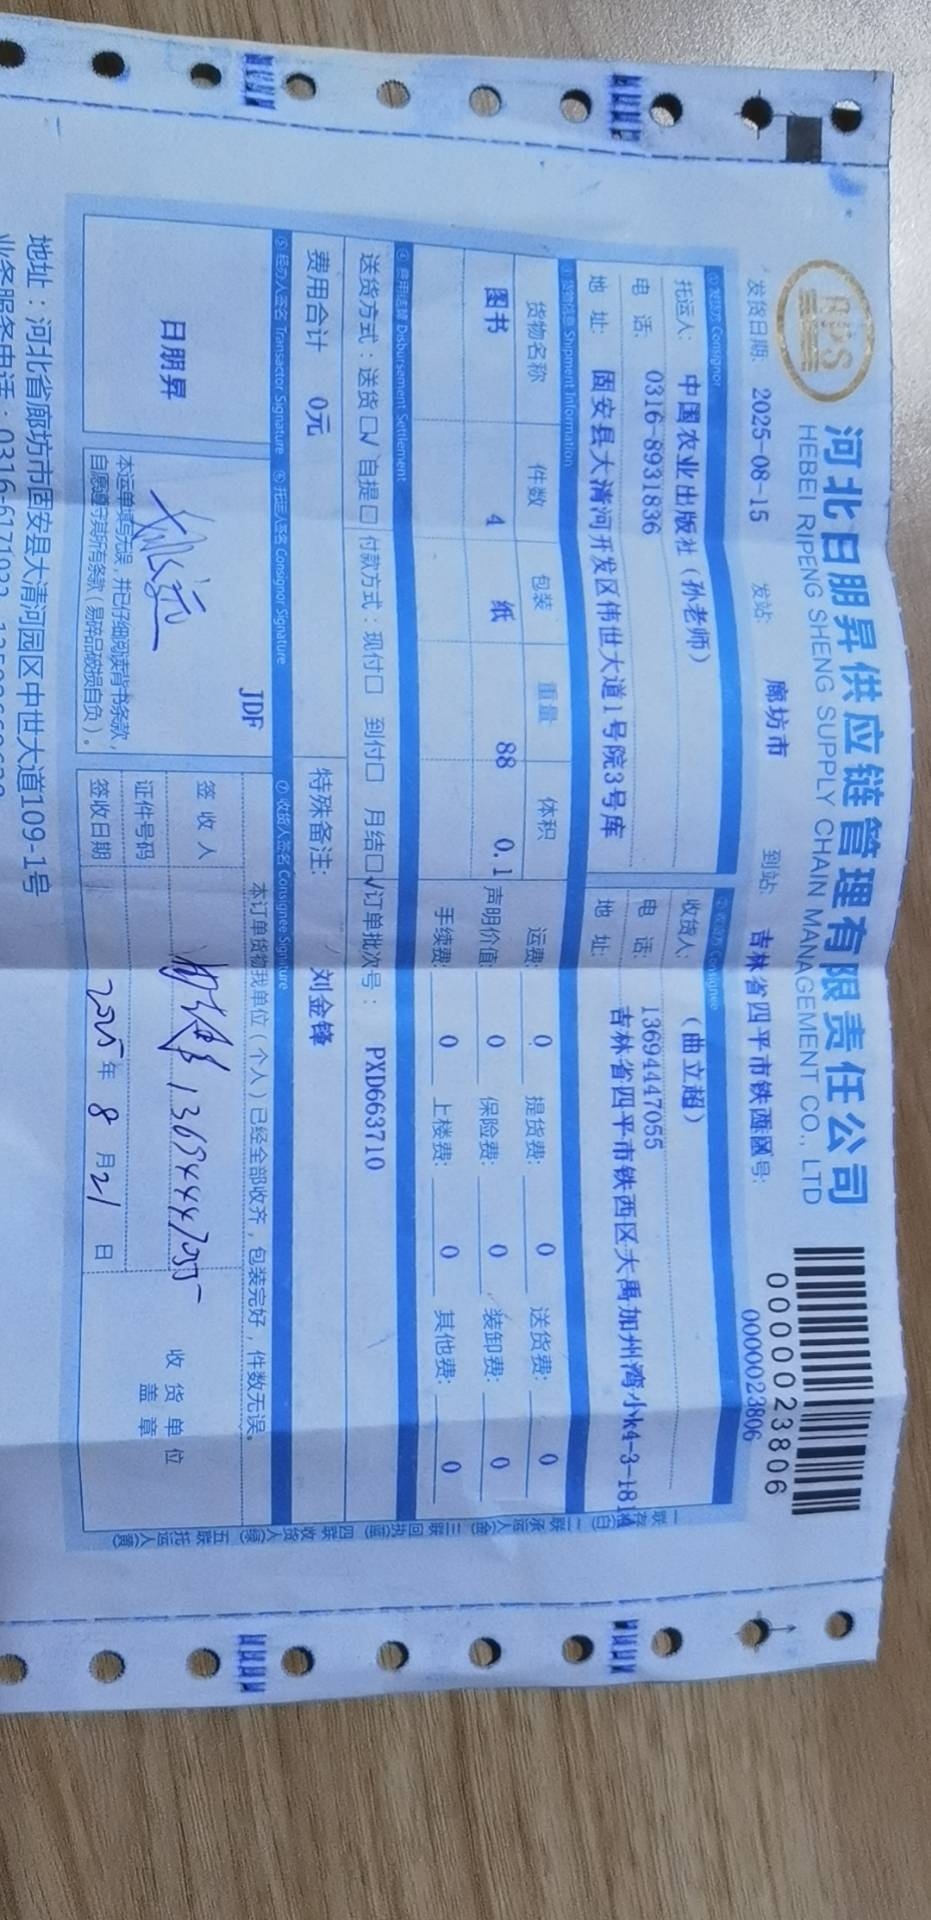 RPS
河北日朋昇供应链管理有限责任公司
HEBEI RIPENG SHENG SUPPLY CHAIN MANAGEMENT CO., LTD
0000023806
发货日期: 2025-08-15 发站: 廊坊市 到站: 吉林省四平市铁西区 号: 0000023806
①发货方 Consignor ②收货方 Consignee
托运人: 中国农业出版社(孙老师) 收货人: (曲立超)
电 话: 0316-8931836 电 话: 13694447055
地 址: 固安县大清河开发区伟世大道1号院3号库 地 址: 吉林省四平市铁西区大禹加州湾小k4-3-181
③货物信息 Shipment Information
货物名称 件数 包装 重量 体积 运费: 0 提货费: 0 送货费: 0
图书 4 纸 88 0.1 声明价值: 0 保险费: 0 装卸费: 0
手续费: 0 上楼费: 0 其他费: 0
④费用结算 Disbursement Settlement
送货方式:送货□√ 自提□ 付款方式:现付□ 到付□ 月结□√ 订单批次号: PXD663710
费用合计 0元 特殊备注: 刘金锋
⑤经办人签名 Transactor Signature ⑥托运人签名 Consignor Signature ⑦收货人签名 Consignee Signature
JDF 本订单货物我单位(个人)已经全部收齐,包装完好,件数无误。
日朋昇
签 收 人 13694447055
收货单位
盖 章
证件号码
本运单填写无误,并已仔细阅读背书条款,
自愿遵守其所有条款(易碎品破损自负)。
签收日期 2025年 8 月 21 日
一联存根(白) 二联承运人(金) 三联回执(蓝) 四联收货人(绿) 五联托运人(黄)
地址:河北省廊坊市固安县大清河园区中世大道109-1号
业务服务电话:0316-6171022